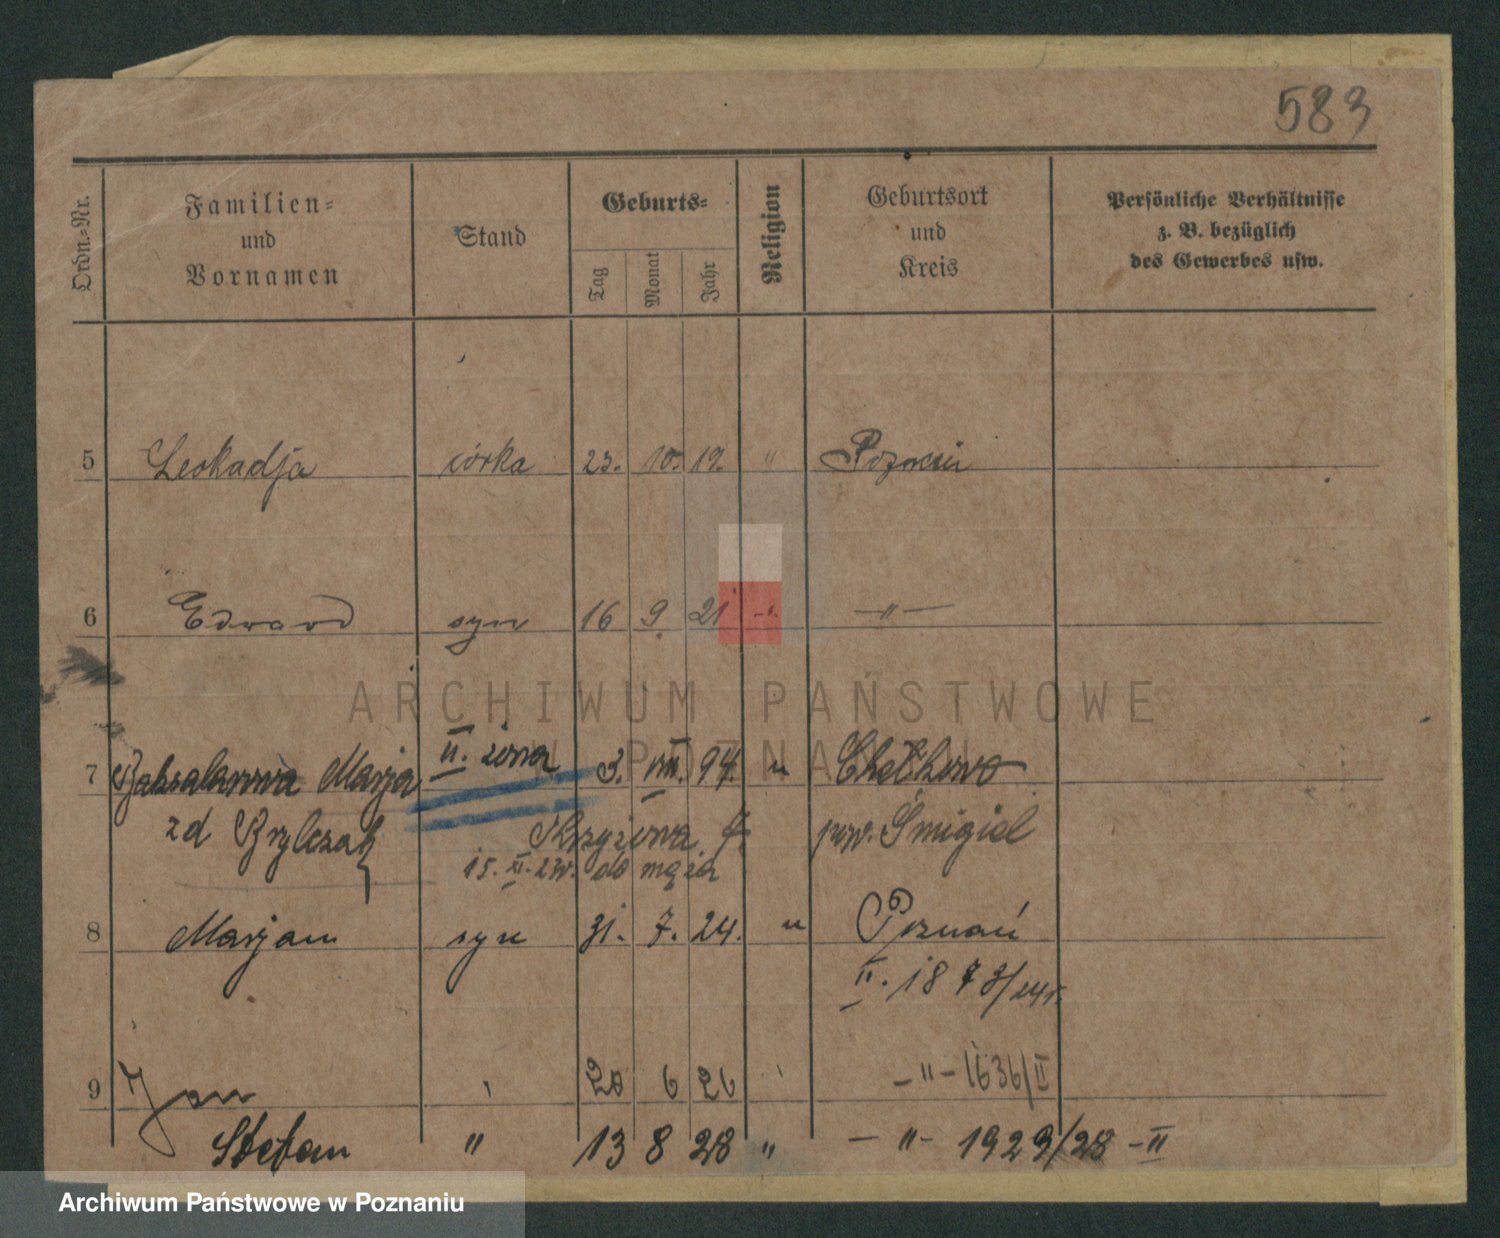 583
Ordn.-Nr.
Familien-
und
Vornamen
Stand
Geburts-
Tag
Monat
Jahr
Religion
Geburtsort
und
Kreis
Persönliche Verhältnisse
z. B. bezüglich
des Gewerbes usw.
5 Leokadja córka 23. 10. 19. " Poznań
6 Edward syn 16 9 21 -"- -"-
ARCHIWUM PAŃSTWOWE
W POZNANIU
7 Marja II. żona 3. VIII. 94. "
zd Brylczak Krzyżowa pow. Śmigiel
15. XI. 23r. do męża
8 Marjan syn 31. 7. 24. " Poznań
II. 1873/24r.
9 Jan " 20 6 26 " -"- 1636/II
Stefan " 13 8 28 " -"- 1929/28 -II
Archiwum Państwowe w Poznaniu